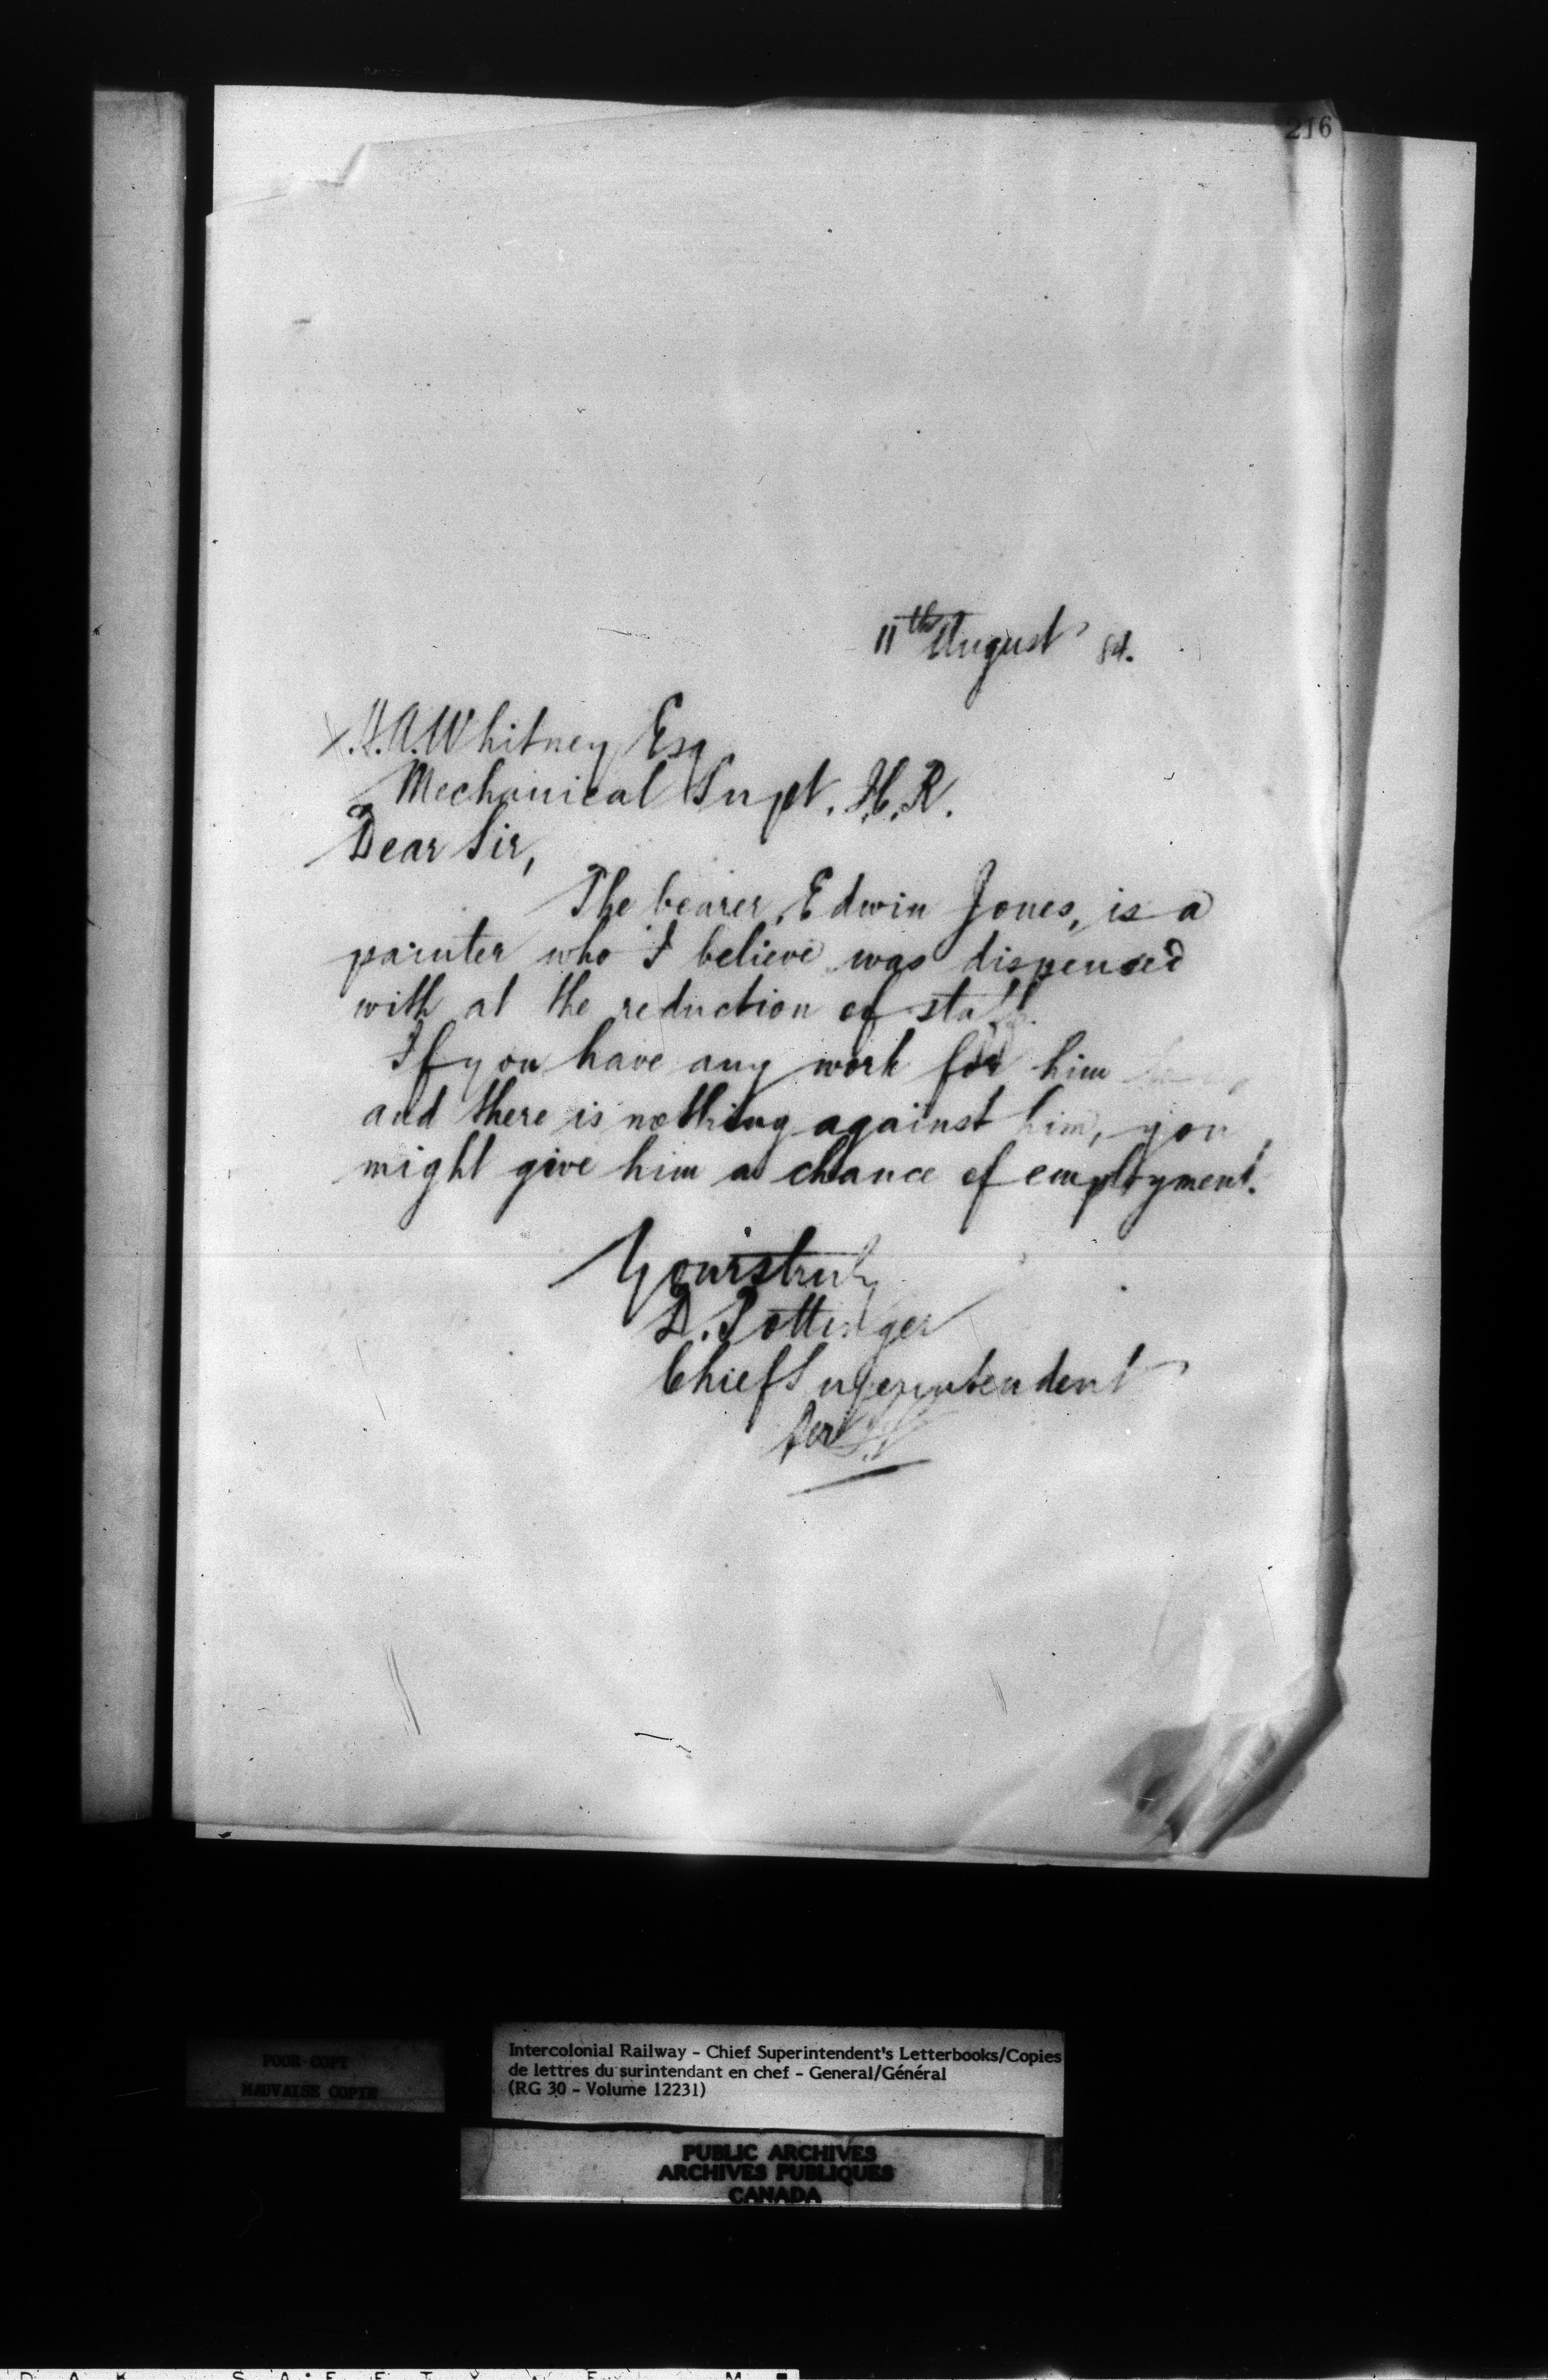 216
11th August 84.
H.A. Whitney Esq
Mechanical Supt. I.C.R.
Dear Sir,
The bearer, Edwin Jones, is a
painter who I believe was dispensed
with at the reduction of staff.
If you have any work for him
and there is nothing against him, you
might give him a chance of employment.
Yours truly
D. Pottinger
Chief Superintendent
Per
POOR COPY
MAUVAISE COPIE
Intercolonial Railway - Chief Superintendent's Letterbooks/Copies
de lettres du surintendant en chef - General/Général
(RG 30 - Volume 12231)
PUBLIC ARCHIVES
ARCHIVES PUBLIQUES
CANADA